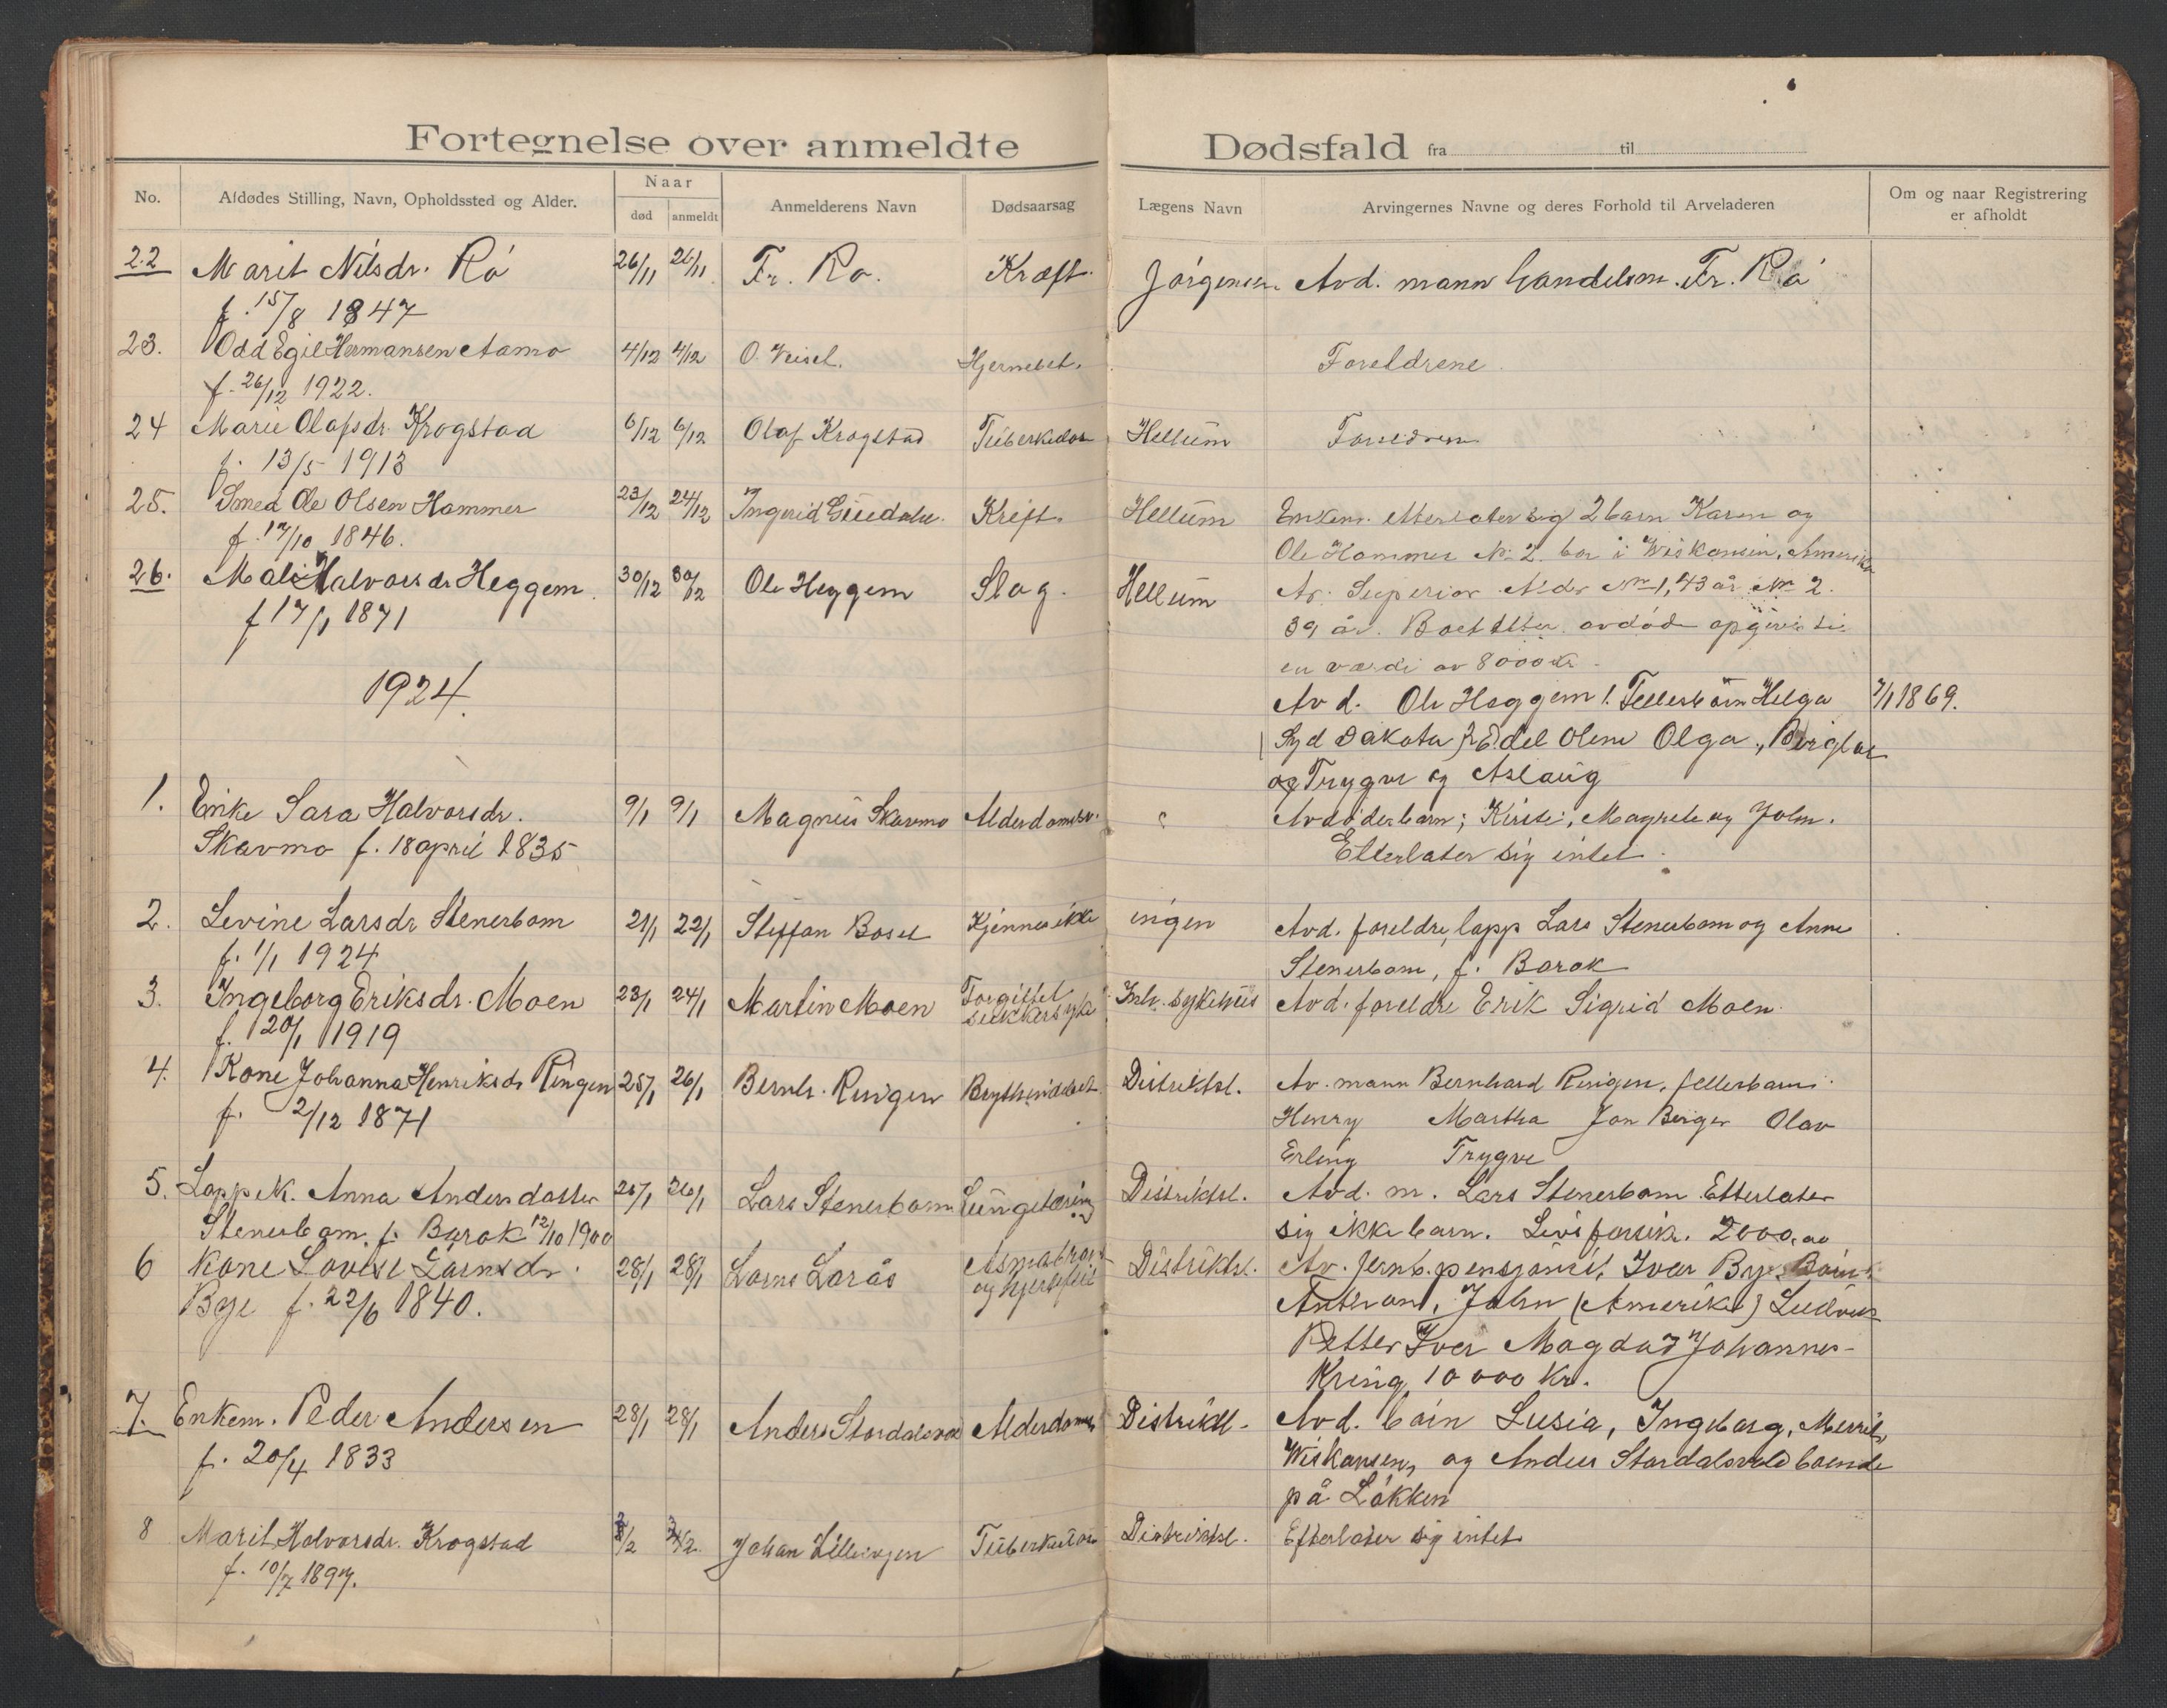 Fortegnelse over anmeldte Dødsfald fra til
No. Afdødes Stilling, Navn, Opholdssted og Alder. Naar død anmeldt Anmelderens Navn Dødsaarsag Lægens Navn Arvingernes Navne og deres Forhold til Arveladeren Om og naar Registrering er afholdt
22 Marit Nilsdr. Rö 26/11 26/11 Fr. Ro. Kræft Jörgensen Avd. mann handelsm. Fr. Rö
f. 15/8 1847
23. Odd Egil Hermansen Aamo 4/12 4/12 O. Veisel. Hjernebet. Foreldrene
f. 26/12 1922.
24 Marie Olafsdr. Krogstad 6/12 6/12 Olaf Krogstad Tuberkulose Hellum Foreldrene
f. 13/5 1913
25. Smed Ole Olsen Hammer 23/12 24/12 Ingerid Kreft. Hellum Enkem. etterlater sig 2 barn Karen og
f. 17/10 1846. Ole Hammer Nr. 2. bor i Wiskonsin, Amerika
26. Mali Halvorsdr Heggem 30/12 30/12 Ole Heggem Slag. Hellum Av. Superior Alder Nr 1, 43 år Nr 2.
f 17/1 1871 39 år. Boet etter avdöde opgives til
en værdi av 8000 kr.
1924. Avd. Ole Heggem 1. Fellesbarn Helga 7/1 1869.
Syd Dakota, 2 Edel Olene Olga, Birger
og Trygve og Aslaug
1. Enke Sara Halvorsdr. 9/1 9/1 Magnus Skavmo Alderdomssv. Avdödes barn; Kirsti, Magrete og John.
Skavmo f. 18 april 1835 Etterlater sig intet.
2. Levine Larsdr Stenerbom 21/1 22/1 Steffan Bosel Kjennes ikke ingen Avd. foreldre, lapp Lars Stenerbom og Anne
f. 1/1 1924 Stenerbom, f. Barok
3. Ingeborg Eriksdr. Moen 23/1 24/1 Martin Moen Forgiftet sukkersyke Inh. sykehus Avd. foreldre Erik Sigrid Moen.
f. 20/1 1919
4. Kone Johanna Henriksdr Ringen 25/1 26/1 Bernh. Ringen Distriktsl. Av. mann Bernhard Ringen, fellesbarn:
f. 2/12 1871 Henry Martha Jon Birger Olav
Erling Trygve
5. Lappek. Anna Andersdatter 25/1 26/1 Lars Stenerbom Lungetæring Distriktsl. Avd. m. Lars Stenerbom. Etterlater
Stenerbom. f. Barok 12/10 1900 sig ikke barn. Livsforsik. 2000,00
6 Kone Lovise Larnsdr. 28/1 28/1 Larns Larås og hjertefeil Distriktsl. Av. Jernb.pensjonist, Iver Bye. Barn:
Bye f. 22/6 1840. Anthon, John (Amerika) Ludvig
Petter Iver Magda Johannes
Kring 10 000 Kr.
7. Enkem. Peder Andersen 28/1 28/1 Anders Stordalsvold Alderdomssv. Distriktl. Avd. barn Lusia, Ingeborg, Merril,
f. 20/4 1833 Wiskonsen, og Anders Stordalsvold boende
på Lökken
8 Marit Halvorsdr. Krogstad 3/2 Johan Lillevigen Tuberkulose Distriktsl. Efterlater sig intet
f. 10/7 1897.